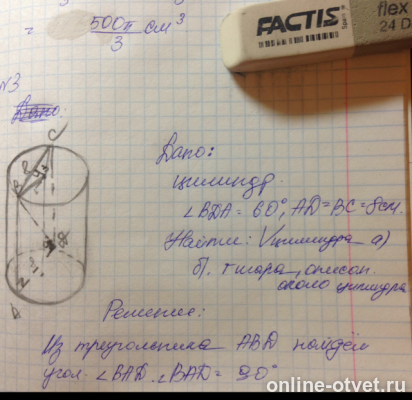 = 500π/3 см³
FACTIS
flex
24 D
№3
Дано.
C
B
A
Дано:
цилиндр
∠BDA = 60°, AD = BC = 8см.
Найти: Vцилиндра а)
б) описан.
около цилиндра
Решение:
Из треугольника ABD найдём
угол ∠BAD. ∠BAD = 90°
online-otvet.ru